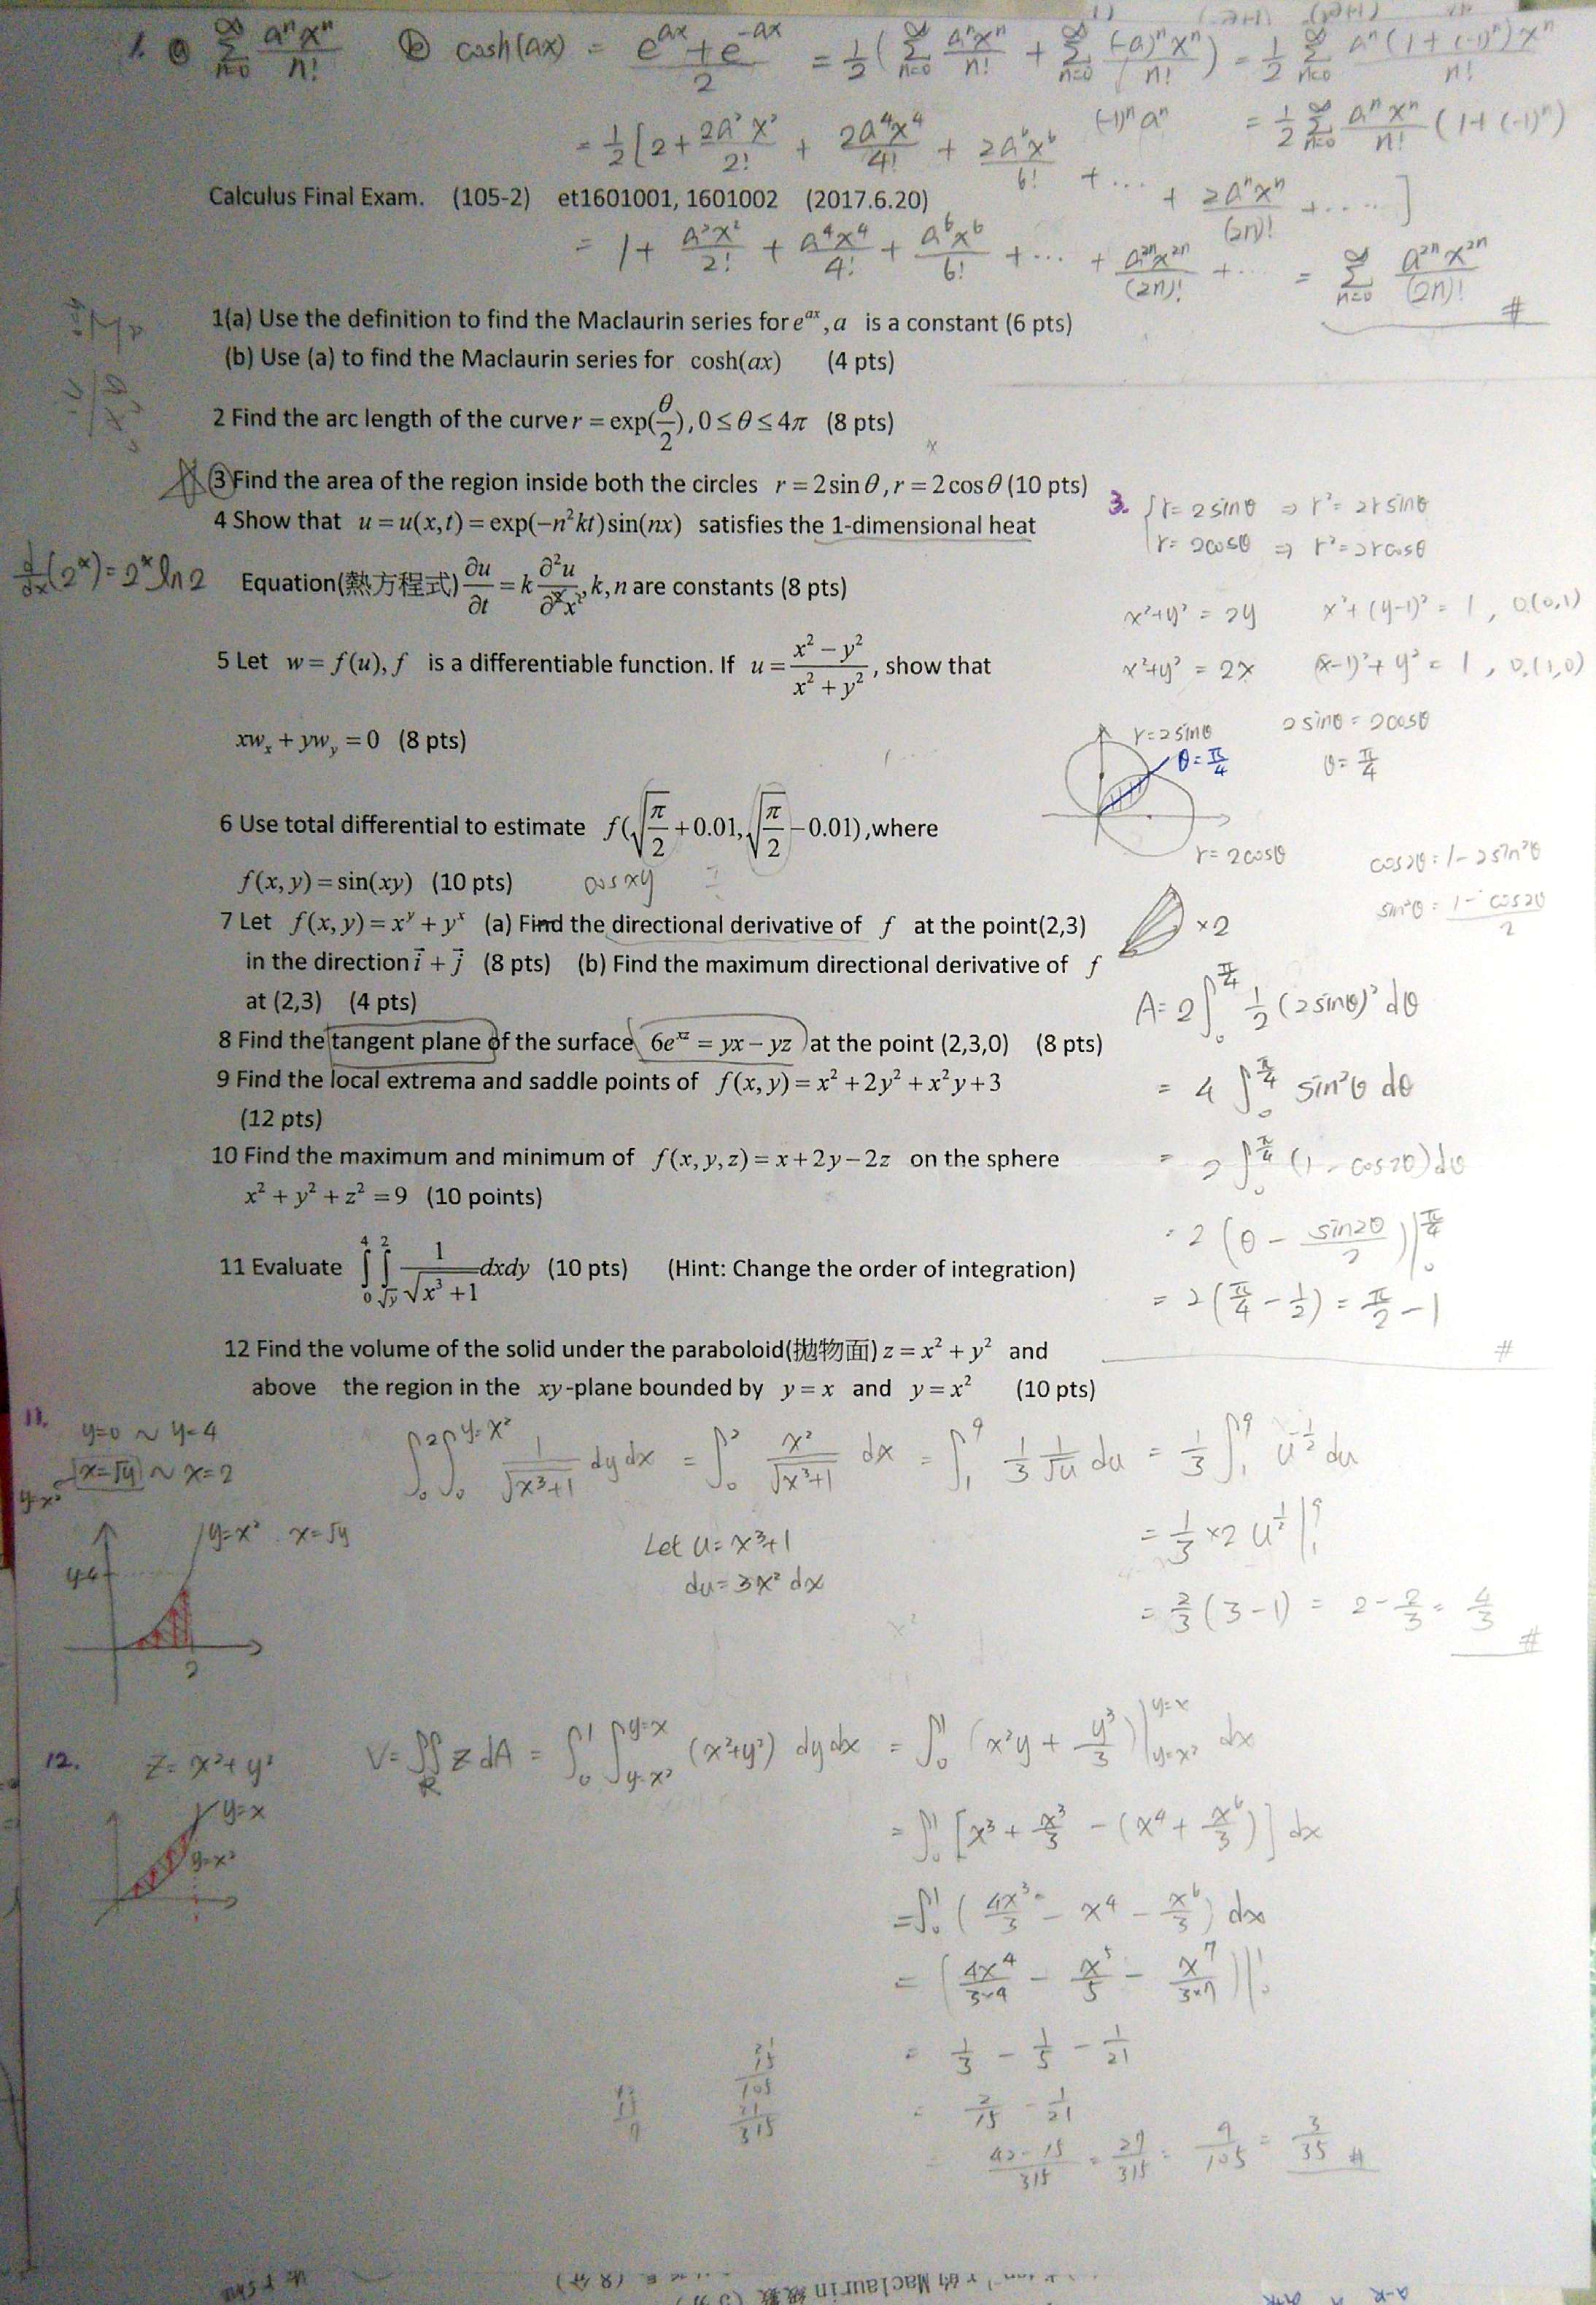 1. ⓐ ∞∑n=0 aⁿxⁿ/n!  ⓑ cosh(ax) = (e^ax + e^-ax)/2 = 1/2 (∞∑n=0 aⁿxⁿ/n! + ∞∑n=0 (-a)ⁿxⁿ/n!) = 1/2 ∞∑n=0 aⁿ(1+(-1)ⁿ)xⁿ/n!
(-1)ⁿaⁿ = 1/2 ∞∑n=0 aⁿxⁿ/n! (1+(-1)ⁿ)
= 1/2 [2 + 2a²x²/2! + 2a⁴x⁴/4! + 2a⁶x⁶/6! + ... + 2aⁿxⁿ/(2n)! + ..... ]
Calculus Final Exam. (105-2) et1601001, 1601002 (2017.6.20)
= 1 + a²x²/2! + a⁴x⁴/4! + a⁶x⁶/6! + ... + a²ⁿx²ⁿ/(2n)! + ... = ∞∑n=0 a²ⁿx²ⁿ/(2n)! #
1(a) Use the definition to find the Maclaurin series for e^ax, a is a constant (6 pts)
(b) Use (a) to find the Maclaurin series for cosh(ax) (4 pts)
2 Find the arc length of the curve r = exp(θ/2), 0 ≤ θ ≤ 4π (8 pts)
3 Find the area of the region inside both the circles r = 2sinθ, r = 2cosθ (10 pts)
4 Show that u = u(x,t) = exp(−n²kt)sin(nx) satisfies the 1-dimensional heat
Equation(熱方程式) ∂u/∂t = k ∂²u/∂x², k, n are constants (8 pts)
d/dx(2ˣ) = 2ˣ ln2
5 Let w = f(u), f is a differentiable function. If u = (x² − y²)/(x² + y²), show that
xwₓ + ywᵧ = 0 (8 pts)
6 Use total differential to estimate f(√(π/2) + 0.01, √(π/2) − 0.01), where
f(x, y) = sin(xy) (10 pts)
cos xy
7 Let f(x, y) = x^y + y^x (a) Find the directional derivative of f at the point(2,3)
in the direction i⃗ + j⃗ (8 pts) (b) Find the maximum directional derivative of f
at (2,3) (4 pts)
8 Find the tangent plane of the surface 6e^xz = yx − yz at the point (2,3,0) (8 pts)
9 Find the local extrema and saddle points of f(x, y) = x² + 2y² + x²y + 3
(12 pts)
10 Find the maximum and minimum of f(x, y, z) = x + 2y − 2z on the sphere
x² + y² + z² = 9 (10 points)
11 Evaluate ∫₀⁴ ∫√y² 1/√(x³ + 1) dxdy (10 pts) (Hint: Change the order of integration)
12 Find the volume of the solid under the paraboloid(拋物面) z = x² + y² and
above the region in the xy-plane bounded by y = x and y = x² (10 pts)
3. r = 2sinθ ⇒ r² = 2rsinθ
r = 2cosθ ⇒ r² = 2rcosθ
x²+y² = 2y x²+(y-1)² = 1, O.(0,1)
x²+y² = 2x (x-1)²+y² = 1, O.(1,0)
r=2sinθ 2sinθ = 2cosθ
θ=π/4 θ = π/4
r=2cosθ
cos2θ = 1-2sin²θ
sin²θ = (1-cos2θ)/2
×2
A = 2∫₀^(π/4) 1/2 (2sinθ)² dθ
= 4 ∫₀^(π/4) sin²θ dθ
= 2∫₀^(π/4) (1-cos2θ)dθ
= 2(θ - sin2θ/2)|₀^(π/4)
= 2(π/4 - 1/2) = π/2 - 1
#
11. y=0 ~ y=4
x=√y ~ x=2
y=x²
y=x² x=√y
y=4
2
∫₀² ∫₀^(y=x²) 1/√(x³+1) dydx = ∫₀² x²/√(x³+1) dx = ∫₁⁹ 1/3 1/√u du = 1/3 ∫₁⁹ u^(-1/2) du
Let u = x³+1
du = 3x² dx
= 1/3 × 2 u^(1/2)|₁⁹
= 2/3 (3-1) = 2 - 2/3 = 4/3 #
x²
12. z = x²+y²
y=x
y=x²
V = ∬R z dA = ∫₀¹ ∫y=x²^(y=x) (x²+y²) dydx = ∫₀¹ (x²y + y³/3)|y=x²^(y=x) dx
= ∫₀¹ [x³ + x³/3 - (x⁴ + x⁶/3)] dx
= ∫₀¹ (4x³/3 - x⁴ - x⁶/3) dx
= (4x⁴/3×4 - x⁵/5 - x⁷/3×7)|₀¹
= 1/3 - 1/5 - 1/21
= 2/15 - 1/21
= (42-15)/315 = 27/315 = 9/105 = 3/35 #
21
15
105
21
315